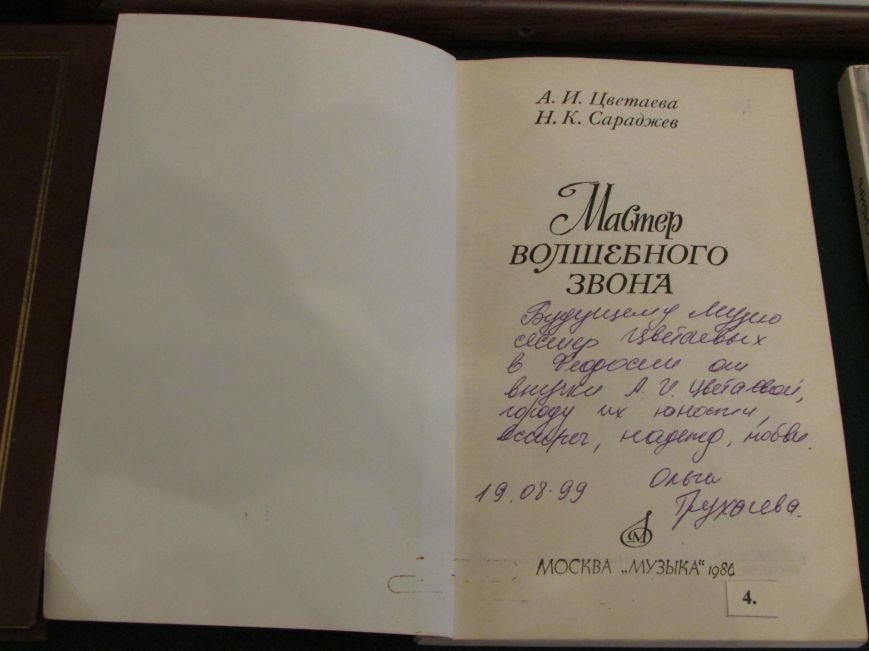 А. И. Цветаева
Н. К. Сараджев
Мастер
ВОЛШЕБНОГО
ЗВОНА
Будущему Музею
сестер Цветаевых
в Феодосии от
внучки А. И. Цветаевой,
городу их юности,
встреч, надежд, любви.
19.08.99 Ольга
Трухачева.
МОСКВА „МУЗЫКА“ 1986
4.